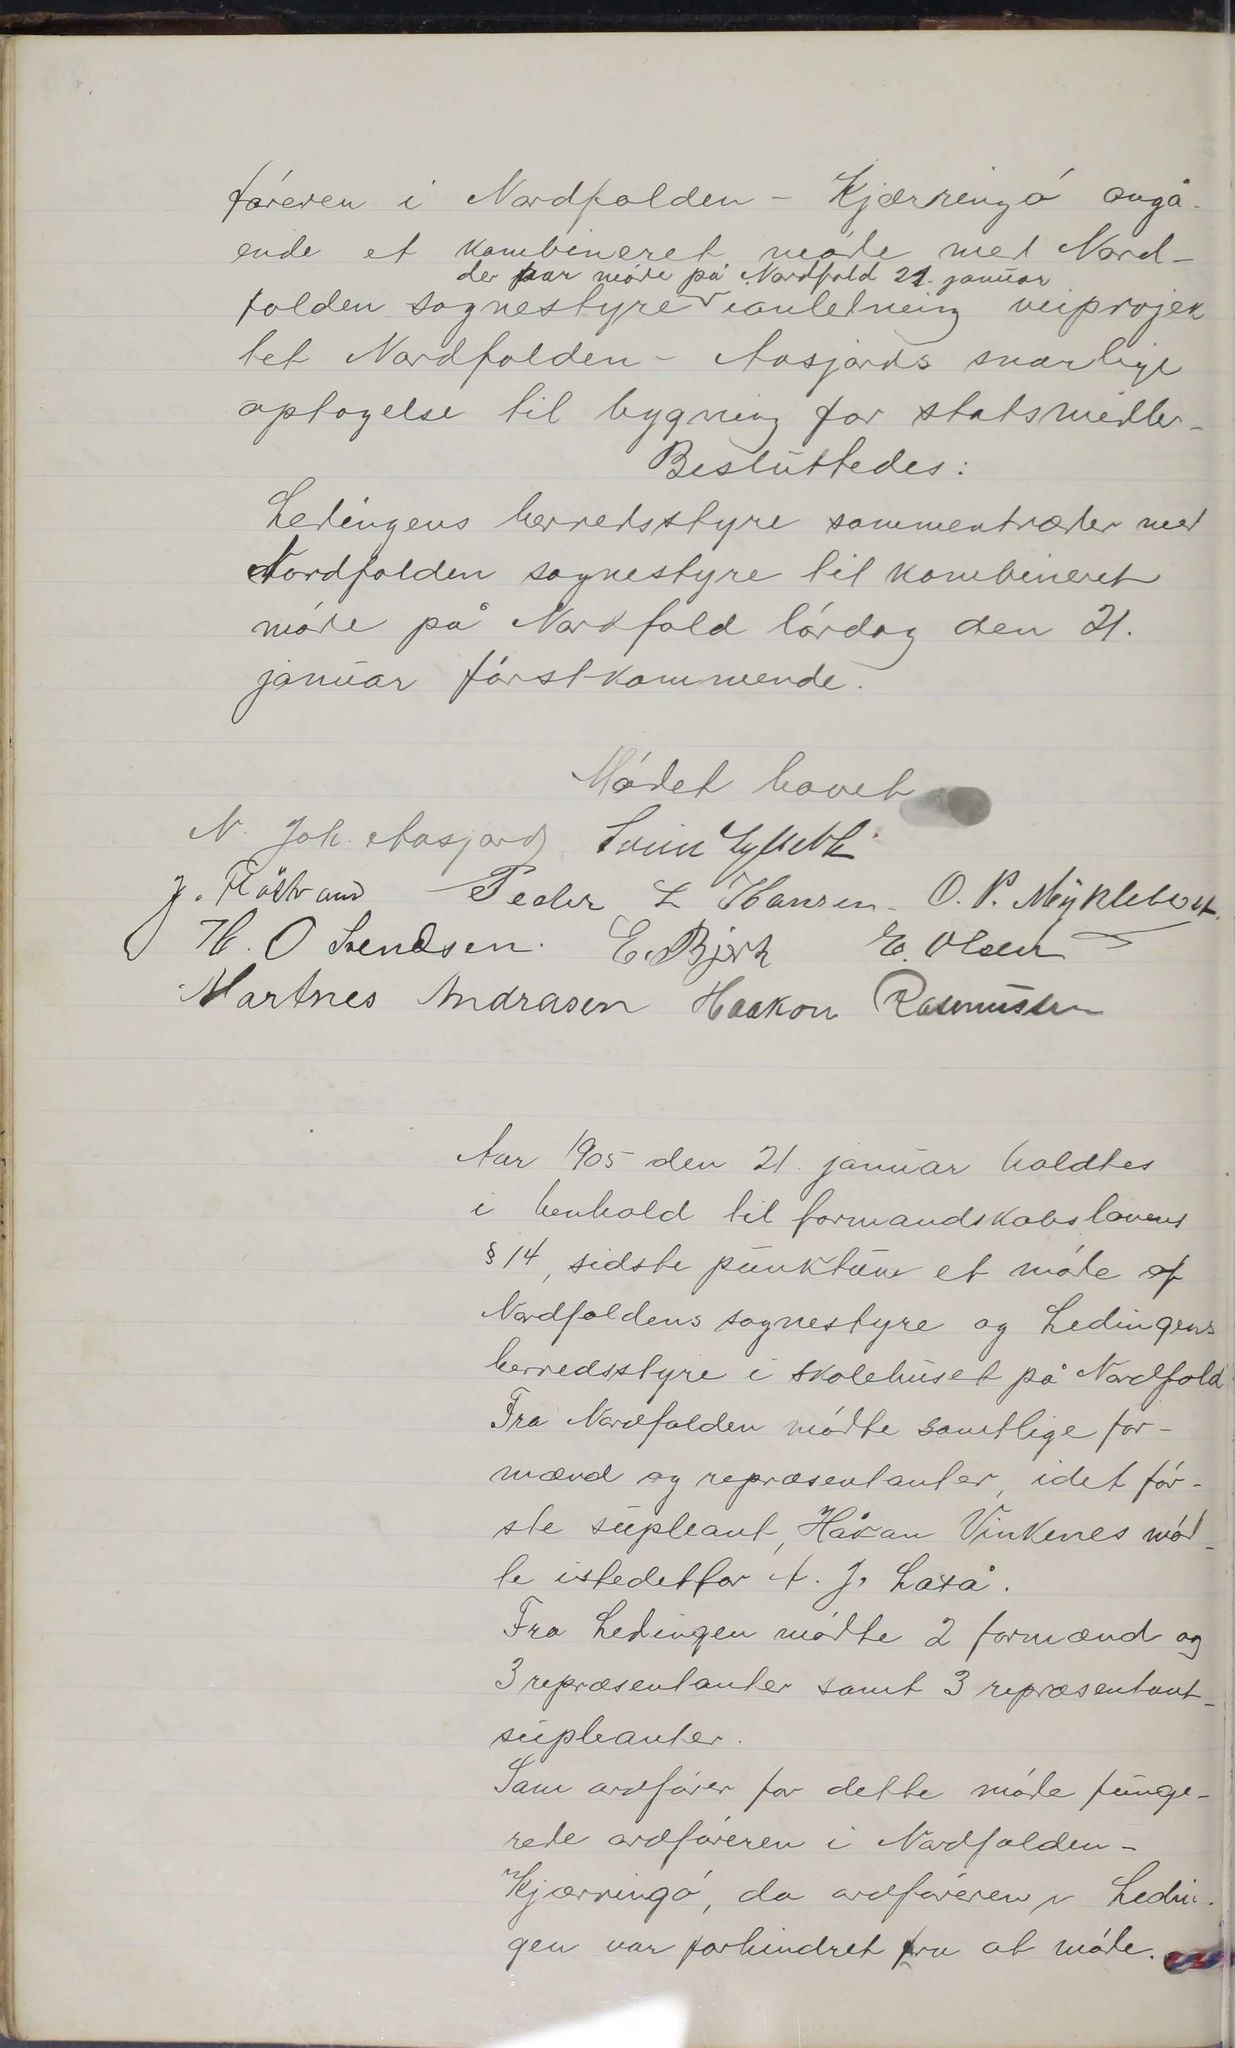 föreren i Nordfolden - Kjærringó angå-
ende et kombineret móde med Nord-
der har móde på Nordfold 21. januar
folden sognestyre ianledning veiprojek
tet Nordfolden - Aasjords snarlige
optagelse til bygning for statsmidler-
Besluttedes:
Ledingens herredsstyre sammentræder med
Nordfolden sognestyre til kombineret
móde på Nordfold lórdag den 21.
januar fórstkommende.
Módet hævet
N. Joh. Aasjord Svein
J. Röstrand Peder L Hansen. O. P. Myklebost.
H. O Svendsen. E. Bjerk E. Olsen
Martnes Andrasen Haakon Rasmussen
Aar 1905 den 21. januar holdtes
i henhold til formandskabslovens
§ 14, sidste punktum et móde af
Nordfoldens sognestyre og Ledingens
herredsstyre i skolehuset på Nordfold
Fra Nordfolden módte samtlige for-
mænd og repræsentanter, idet fór-
ste supleant, Håkan Vinkenes mód-
te istedetfor A. J. Laxå.
Fra Ledingen módte 2 formænd og
3 repræsentanter samt 3 repræsentant-
supleanter.
Som ordfórer for dette móde funge-
rede ordfóreren i Nordfolden-
Kjærringó, da ordfóreren i Ledin-
gen var forhindret fra at móde.